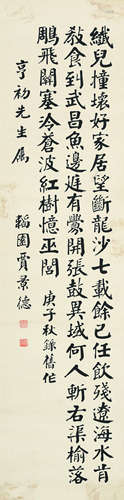 纖兒撞壞好家居望斷龍沙七載餘已任飲殘遼海水肯
教食到武昌魚邊廷有釁開張鼓異域何人斬右渠榆落
鵰飛關塞冷蒼波紅樹憶巫閭 庚子秋錄舊作
亨初先生屬 韜園賈景德